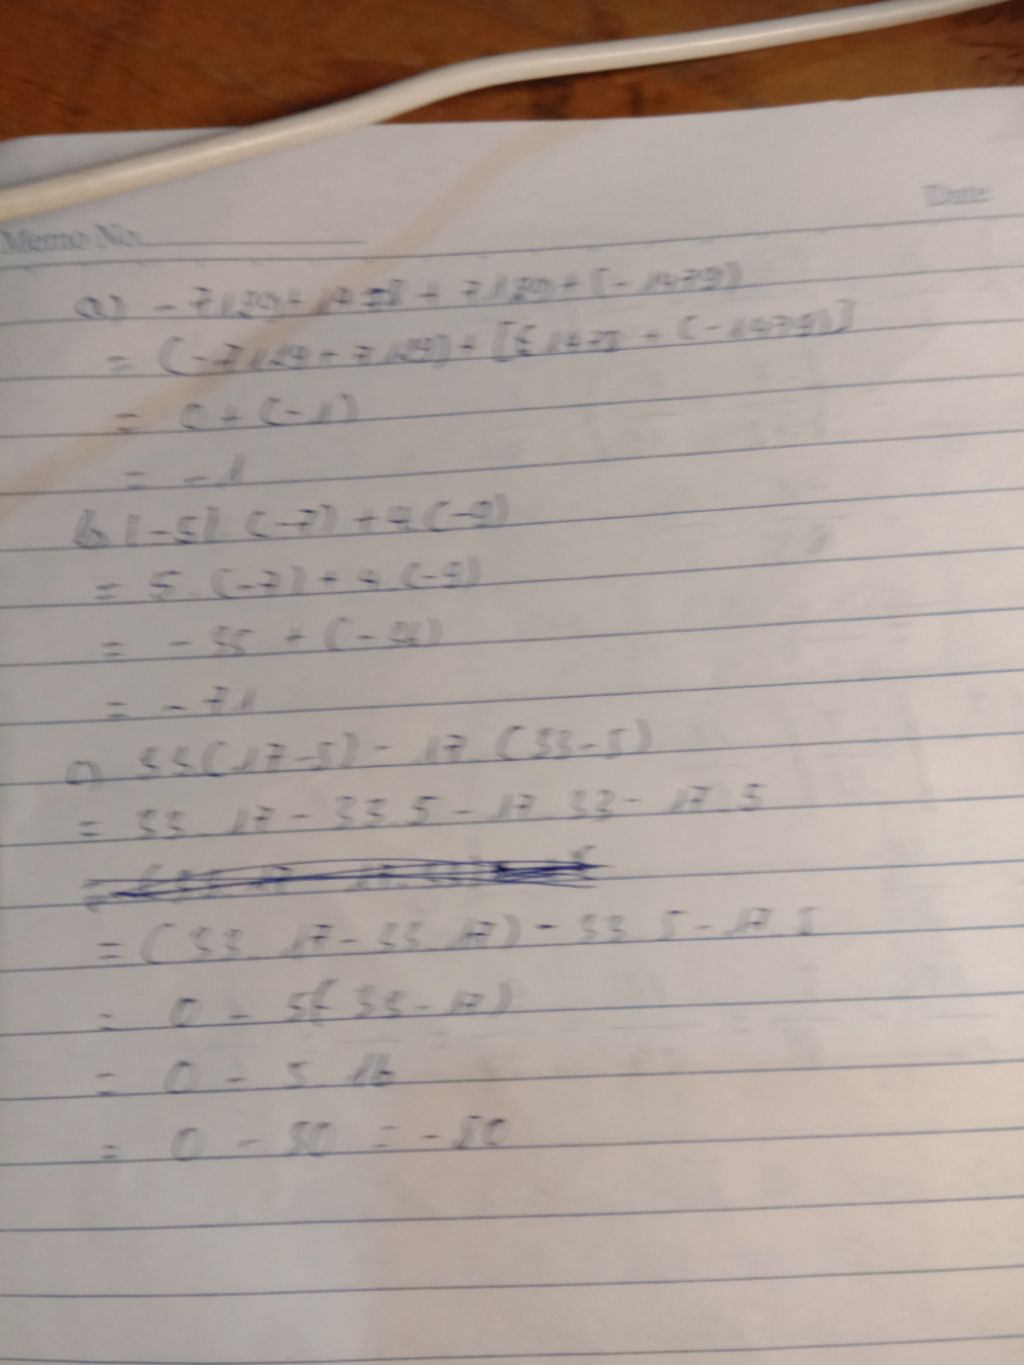 Date
Memo No.
a) - 7129 + 1478 + 7129 + (-1479)
= (-7129 + 7129) + [1478 + (-1479)]
= 0 + (-1)
= -1
b |-5| . (-7) + 4 . (-9)
= 5 . (-7) + 4 . (-9)
= - 35 + (-36)
= - 71
c) 33 (17-5) - 17 . (33-5)
= 33 . 17 - 33 . 5 - 17 . 33 - 17 . 5
= (33 . 17 - 33 . 17) - 33 . 5 - 17 . 5
= 0 - 5(33 - 17)
= 0 - 5 . 16
= 0 - 80 = - 80